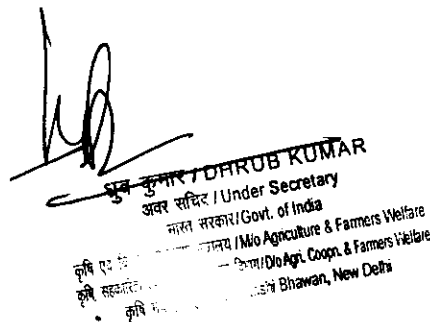 ध्रुव कुमार / DHRUB KUMAR
अवर सचिव / Under Secretary
भारत सरकार/Govt. of India
कृषि एवं / M/o Agriculture & Farmers Welfare
कृषि सहकारिता विभाग/D/o Agri. Coopn. & Farmers Welfare
कृषि Bhawan, New Delhi